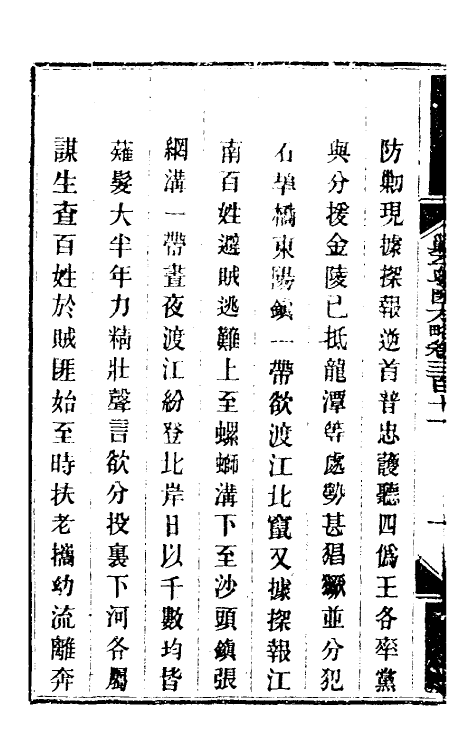 防勦現據探報逆首普忠護聽四僞王各率黨
與分援金陵已抵龍潭等處勢甚猖獗並分犯
石埠橋東陽鎭一帶欲渡江北竄又據探報江
南百姓避賊逃難上至螺螄溝下至沙頭鎭張
網溝一帶晝夜渡江紛登北岸日以千數均皆
薙髮大半年力精壯聲言欲分投裏下河各屬
謀生查百姓於賊匪始至時扶老攜幼流離奔
卷三百十一
一